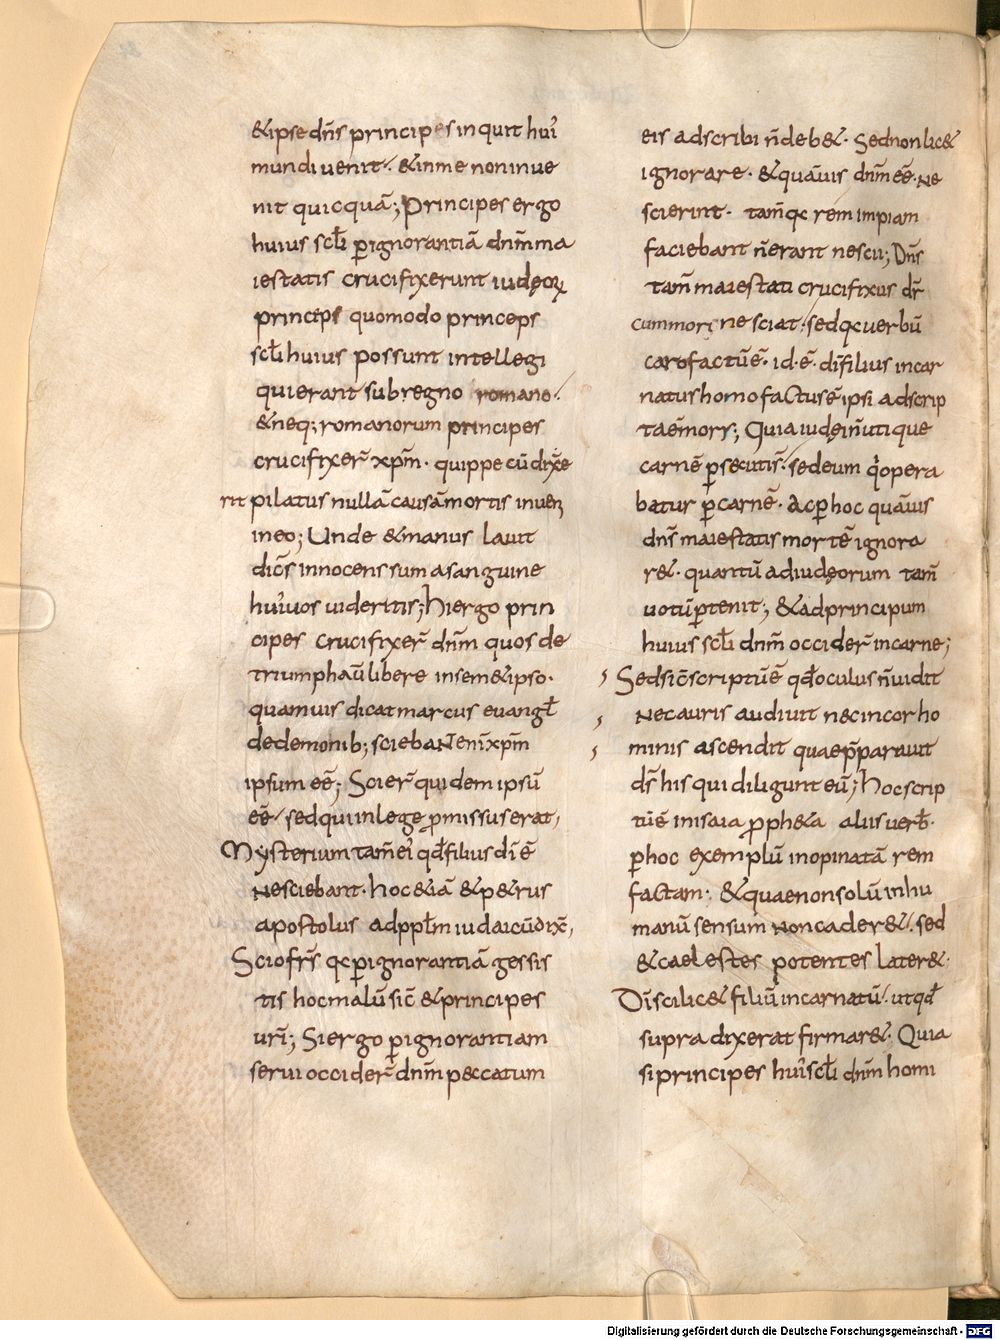 &ipse dn̄s principes inquit hui᾽
mundi uenit· &in me non inue
nit quicquā; Principes ergo
huius sc̄li ꝑignorantiā dn̄m ma
iestatis crucifixerunt iudęoꝝ
princeps quomodo princeps
sc̄li huius possunt intellegi
qui erant sub regno romano·
& neq; romanorum principes
crucifixer̄ xp̄m· quippe cū dixe
rit pilatus nullā causā mortis inueni
in eo; Unde & manus lauit
dic̄s innocens sum a sanguine
hui᾽ uos uideritis; hi ergo prin
cipes crucifixer̄ dn̄m quos de
triumphauı̄t libere in sem&ipso·
quamuis dicat marcus euangl̄
de demonib; scieba enī xp̄m
ipsum eē; Scier̄ quidem ipsū
eē· sed qui in lege ꝓmissus erat,
Mysterium tam̄ ei᾽ qd̄ filius dı̄ ē
Nesciebant· hoc &iā & p&rus
apostolus ad ppl̄m iudaicū dix̄,
Scio fr̄s qꝛ ꝑignorantiā gessis
tis hoc malū sic̄ & principes
urı̄; Si ergo ꝑignorantiam
serui occider̄ dn̄m peccatum
eis adscribi n̄ deb&· Sed non lic&
ignorare· & quāuis dn̄m eē· Ne
scierint· tam̄ qꝛ rem impiam
faciebant n̄ erant nescii; Dn̄s
tam̄ maiestati crucifixus dr̄
cum mori nesciat· sed qꝛ uerbū
caro factū ē· id· ē· dı̄ filius incar
natus homo factus ē ipsi adscrip
ta ē mors; Quia iudęi n̄ utique
carnē ꝑsecuti s̄· sed eum qⁱ opera
batur ꝑ carnē· Ac ꝑ hoc quāuis
dn̄s maiestatis mortē ignora
r&· quantū ad iudęorum tam̄
uotū ꝑtenit; & ad principum
huius sc̄li dn̄m occider̄ in carne;
Sed sic̄ scriptū ē qd̄ oculus n̄ uidit
Nec auris audiuit nec in cor ho
minis ascendit quae p̄parauit
ds̄ his qui diligunt eū; Hoc scrip
tū ē in isaia ꝓph&a aliis uerb̄·
ꝑ hoc exemplū inopinatā rem
factam· & quae non solū in hu
manū sensum non cader&· sed
& caelestes potentes later&·
Dı̄ scilic& filiū incarnatū· ut qd̄
supra dixerat firmar&· Quia
si principes hui᾽ sc̄li dn̄m homi